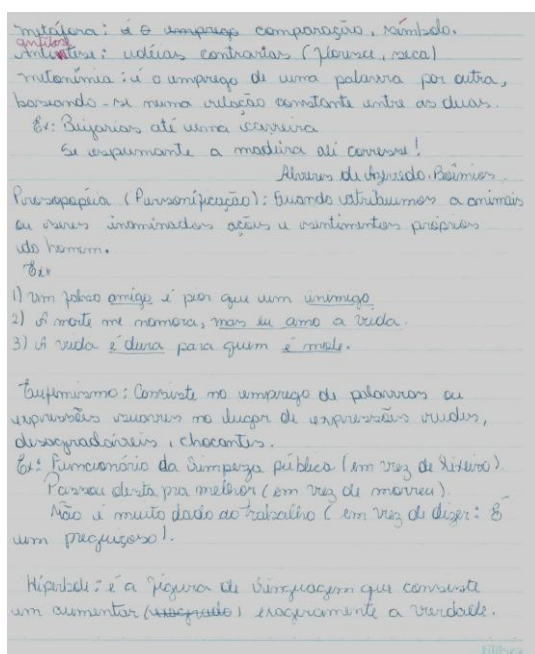 metáfora: é o emprego comparação, símbolo.
antítese
Antítese: idéias contrarias (floresce, seca)
metonímia: é o emprego de uma palavra por outra,
baseando-se numa relação constante entre as duas.
Ex: Beijarias até uma caveira
Se espumante a madeira ali corresse!
Álvares de Azevedo. Boêmios
Prosopopéia (Personificação): Quando atribuimos a animais
ou seres inanimados ações e sentimentos próprios
do homem.
Ex:
1) Um falso amigo é pior que um inimigo
2) A morte me namora, mas eu amo a vida.
3) A vida é dura para quem é mole.
Eufemismo: Consiste no emprego de palavras ou
expressões suaves no lugar de expressões rudes,
desagradáveis, chocantes.
Ex: Funcionário da limpeza pública (em vez de lixeiro).
Passou desta pra melhor (em vez de morreu).
Não é muito dado ao trabalho (em vez de dizer: É
um preguiçoso).
Hipérbole: é a figura de linguagem que consiste
em aumentar (exagerado) exageramente a verdade.
tilibra